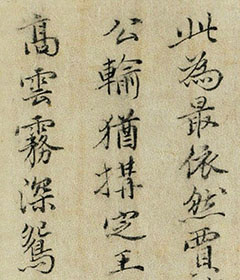 此為最依然賈
公輸猶搆定王
高雲霧深鴛